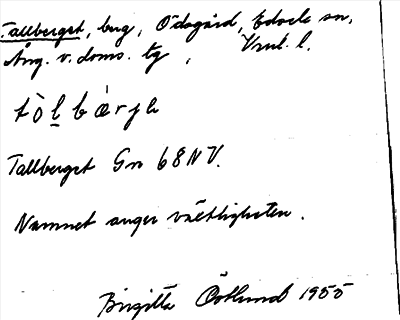 Tallberget, berg, Ödsgård, Edsele sn,
Ång. v. doms. tg, Vrml. l.
tòlbærje
Tallberget Gn 68 NV.
Namnet anger växtligheten.
Birgitta Östlund 1955